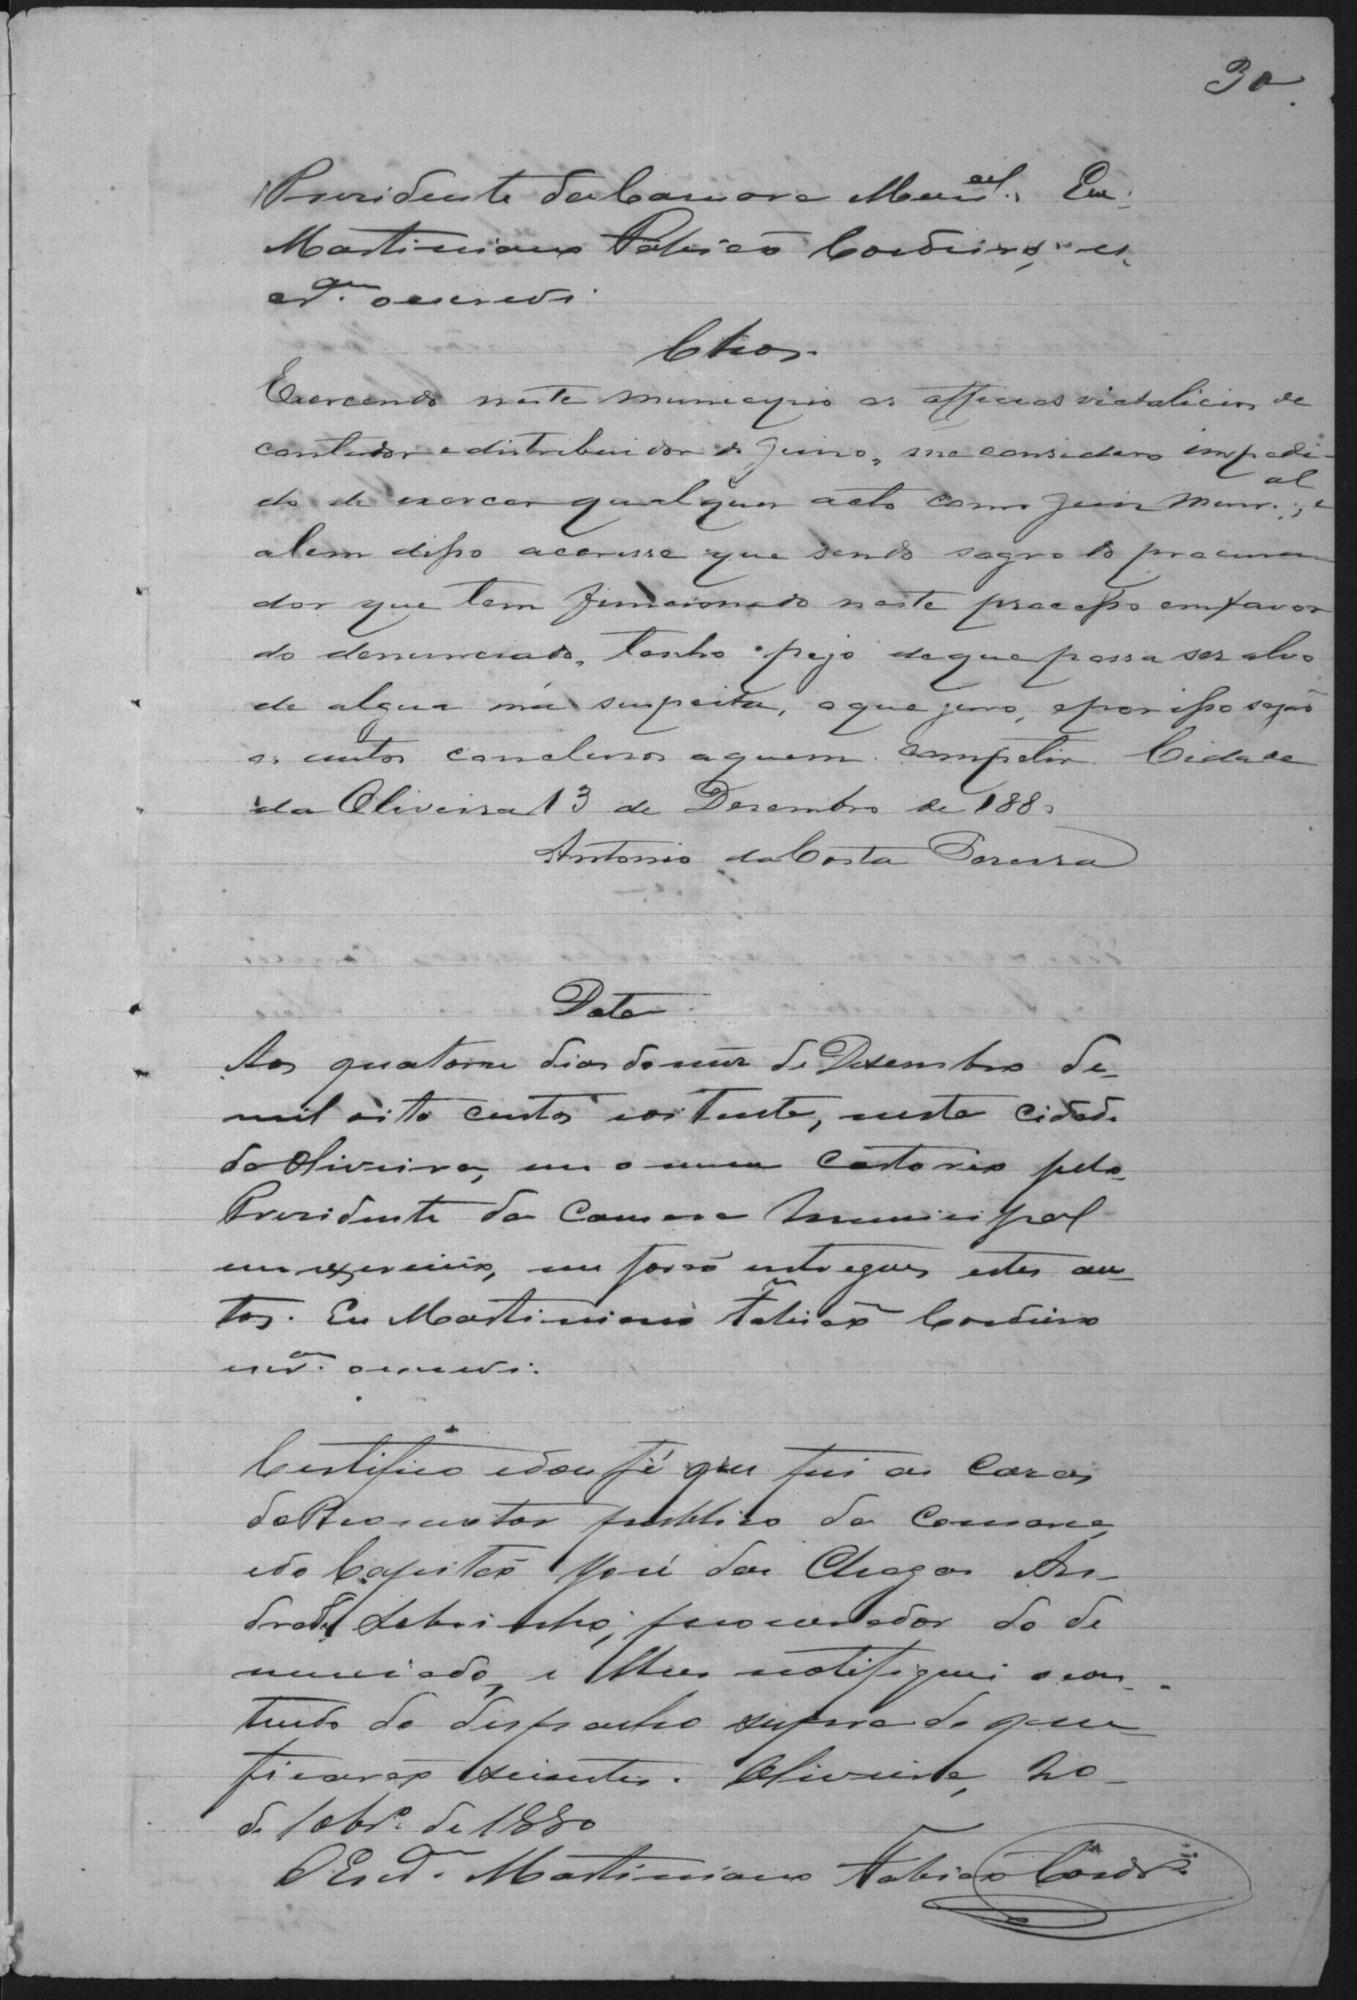 30
Presidente da Camara Mun.al Eu
Martiniano Fabião Cordeiro, es-
cr.am o escrevi.
Clsos.
Exercendo neste municipio os officios vitalicios de
contador e distribuidor do Juiso, me considero impedi-
do de exercer qualquer acto como Juiz Mun.al, e
alem disso accresse que sendo sogro do procura-
dor que tem funcionado neste processo em favor
do denunciado, tenho pejo de que possa ser alvo
de algua má suspeita, o que juro, e por isso sejão
os autos conclusos a quem competir. Cidade
da Oliveira 13 de Desembro de 1880
Antonio da Costa Pereira
Data
Aos quatorze dias do mez de Desembro de
mil oito centos e oitenta, nesta cidade
da Oliveira, em o meu cartorio pelo
Presidente da Camara Municipal
em exercicio, me forão entregues estes au-
tos. Eu Martiniano Fabião Cordeiro
escr.am o escrevi.
Certifico e dou fé que fui as casas
do Promotor publico da Comarca,
e do Capitão José das Chagas An-
drade Sobrinho, procurador do de
nunciado, e lhes notifiquei o con-
teudo do despacho supra do que
ficarão scientes. Oliveira, 20
de 10br.o de 1880
O Escr.am Martiniano Fabião Cordr.o